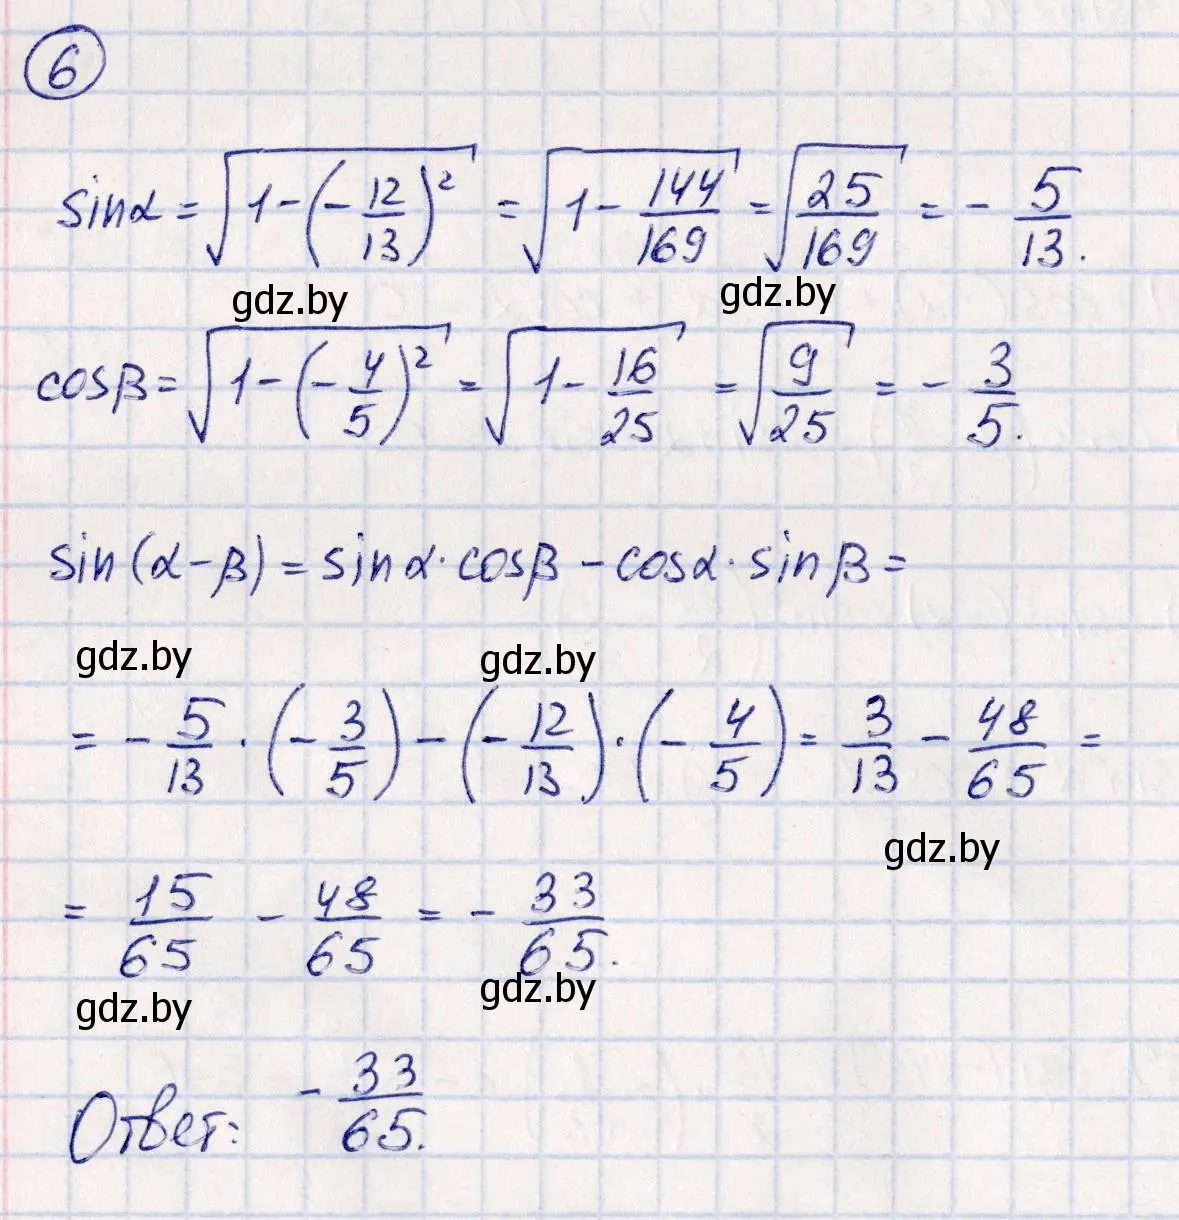 6
sinα = √(1-(-12/13)²) = √(1-144/169) = √(25/169) = -5/13.
gdz.by gdz.by
cosβ = √(1-(-4/5)²) = √(1-16/25) = √(9/25) = -3/5.
sin(α-β) = sinα·cosβ - cosα·sinβ =
gdz.by gdz.by
= -5/13·(-3/5)-(-12/13)·(-4/5) = 3/13 - 48/65 =
gdz.by
= 15/65 - 48/65 = -33/65.
gdz.by gdz.by
Ответ: -33/65.